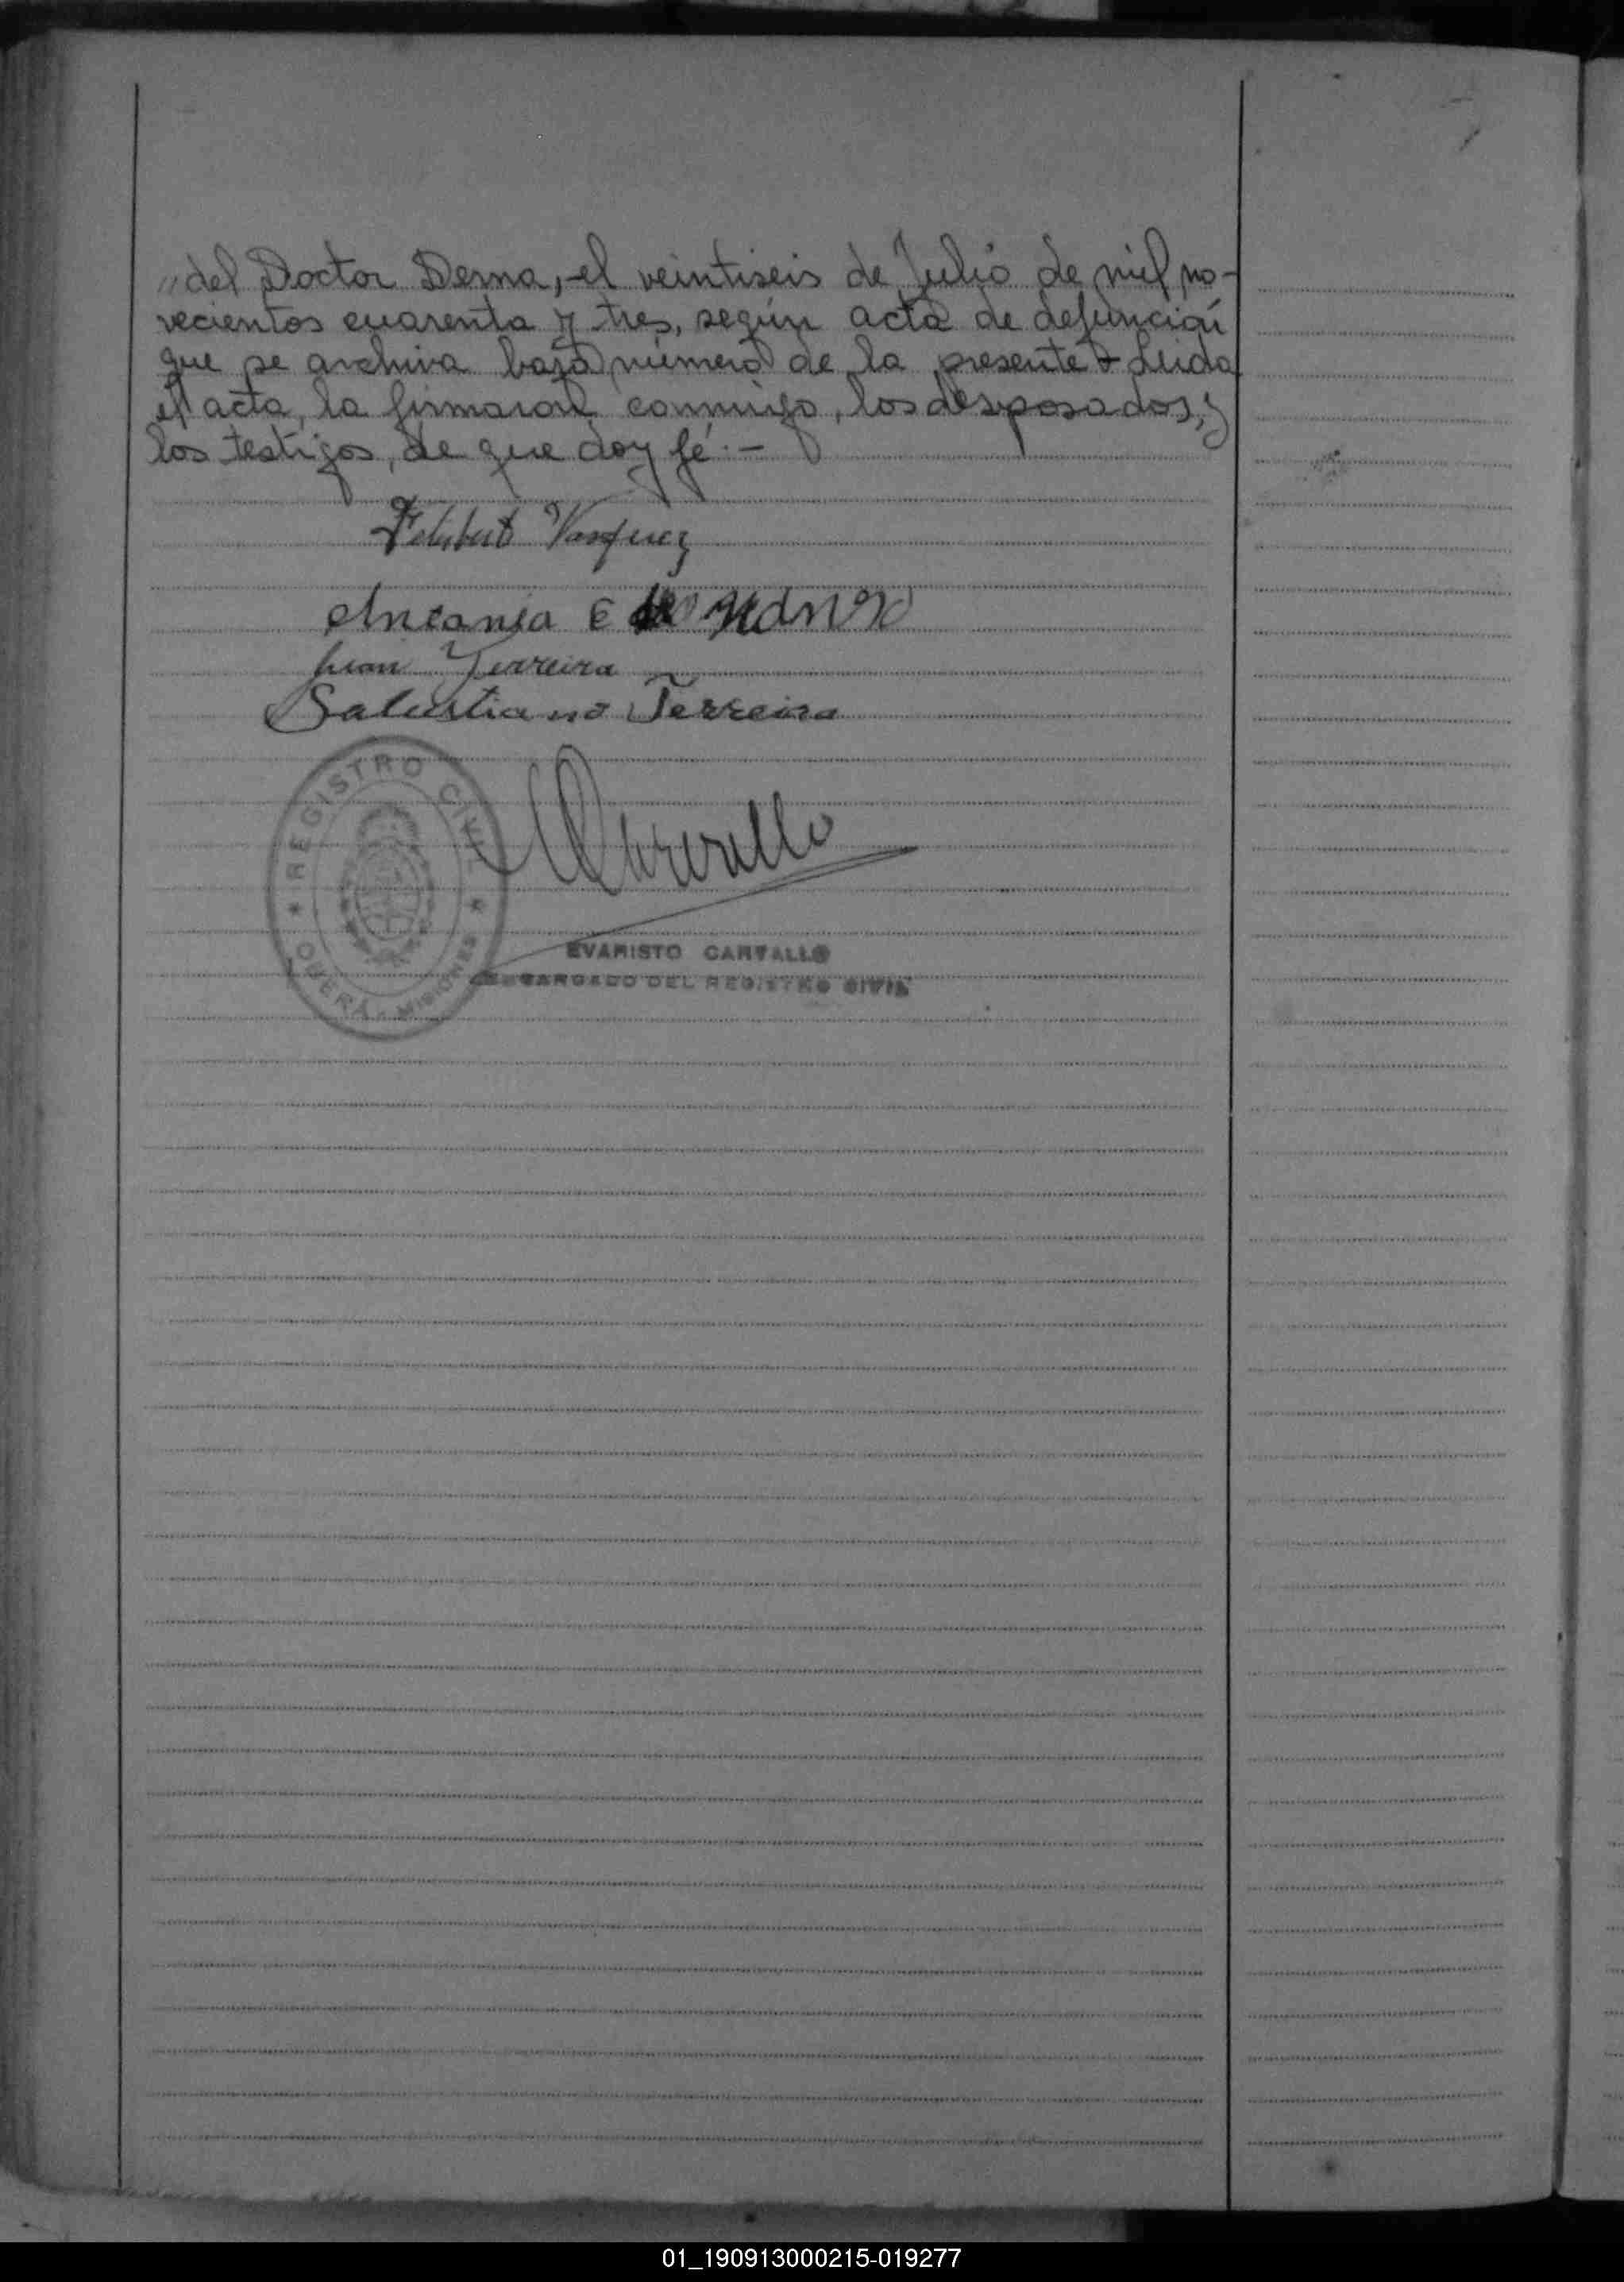 "del Doctor Derna, el veintiseis de Julio de mil no-
vecientos cuarenta y tres, según acta de defunción
que se archiva bajo número de la presente - Leida
el acta, la firmaron conmigo, los desposados, y
los testigos, de que doy fé.-
Vasquez
Juan Ferreira
Salustiano Ferreira
REGISTRO CIVIL
OBERÁ - MISIONES
EVARISTO CARVALLO
ENCARGADO DEL REGISTRO CIVIL
01_190913000215-019277